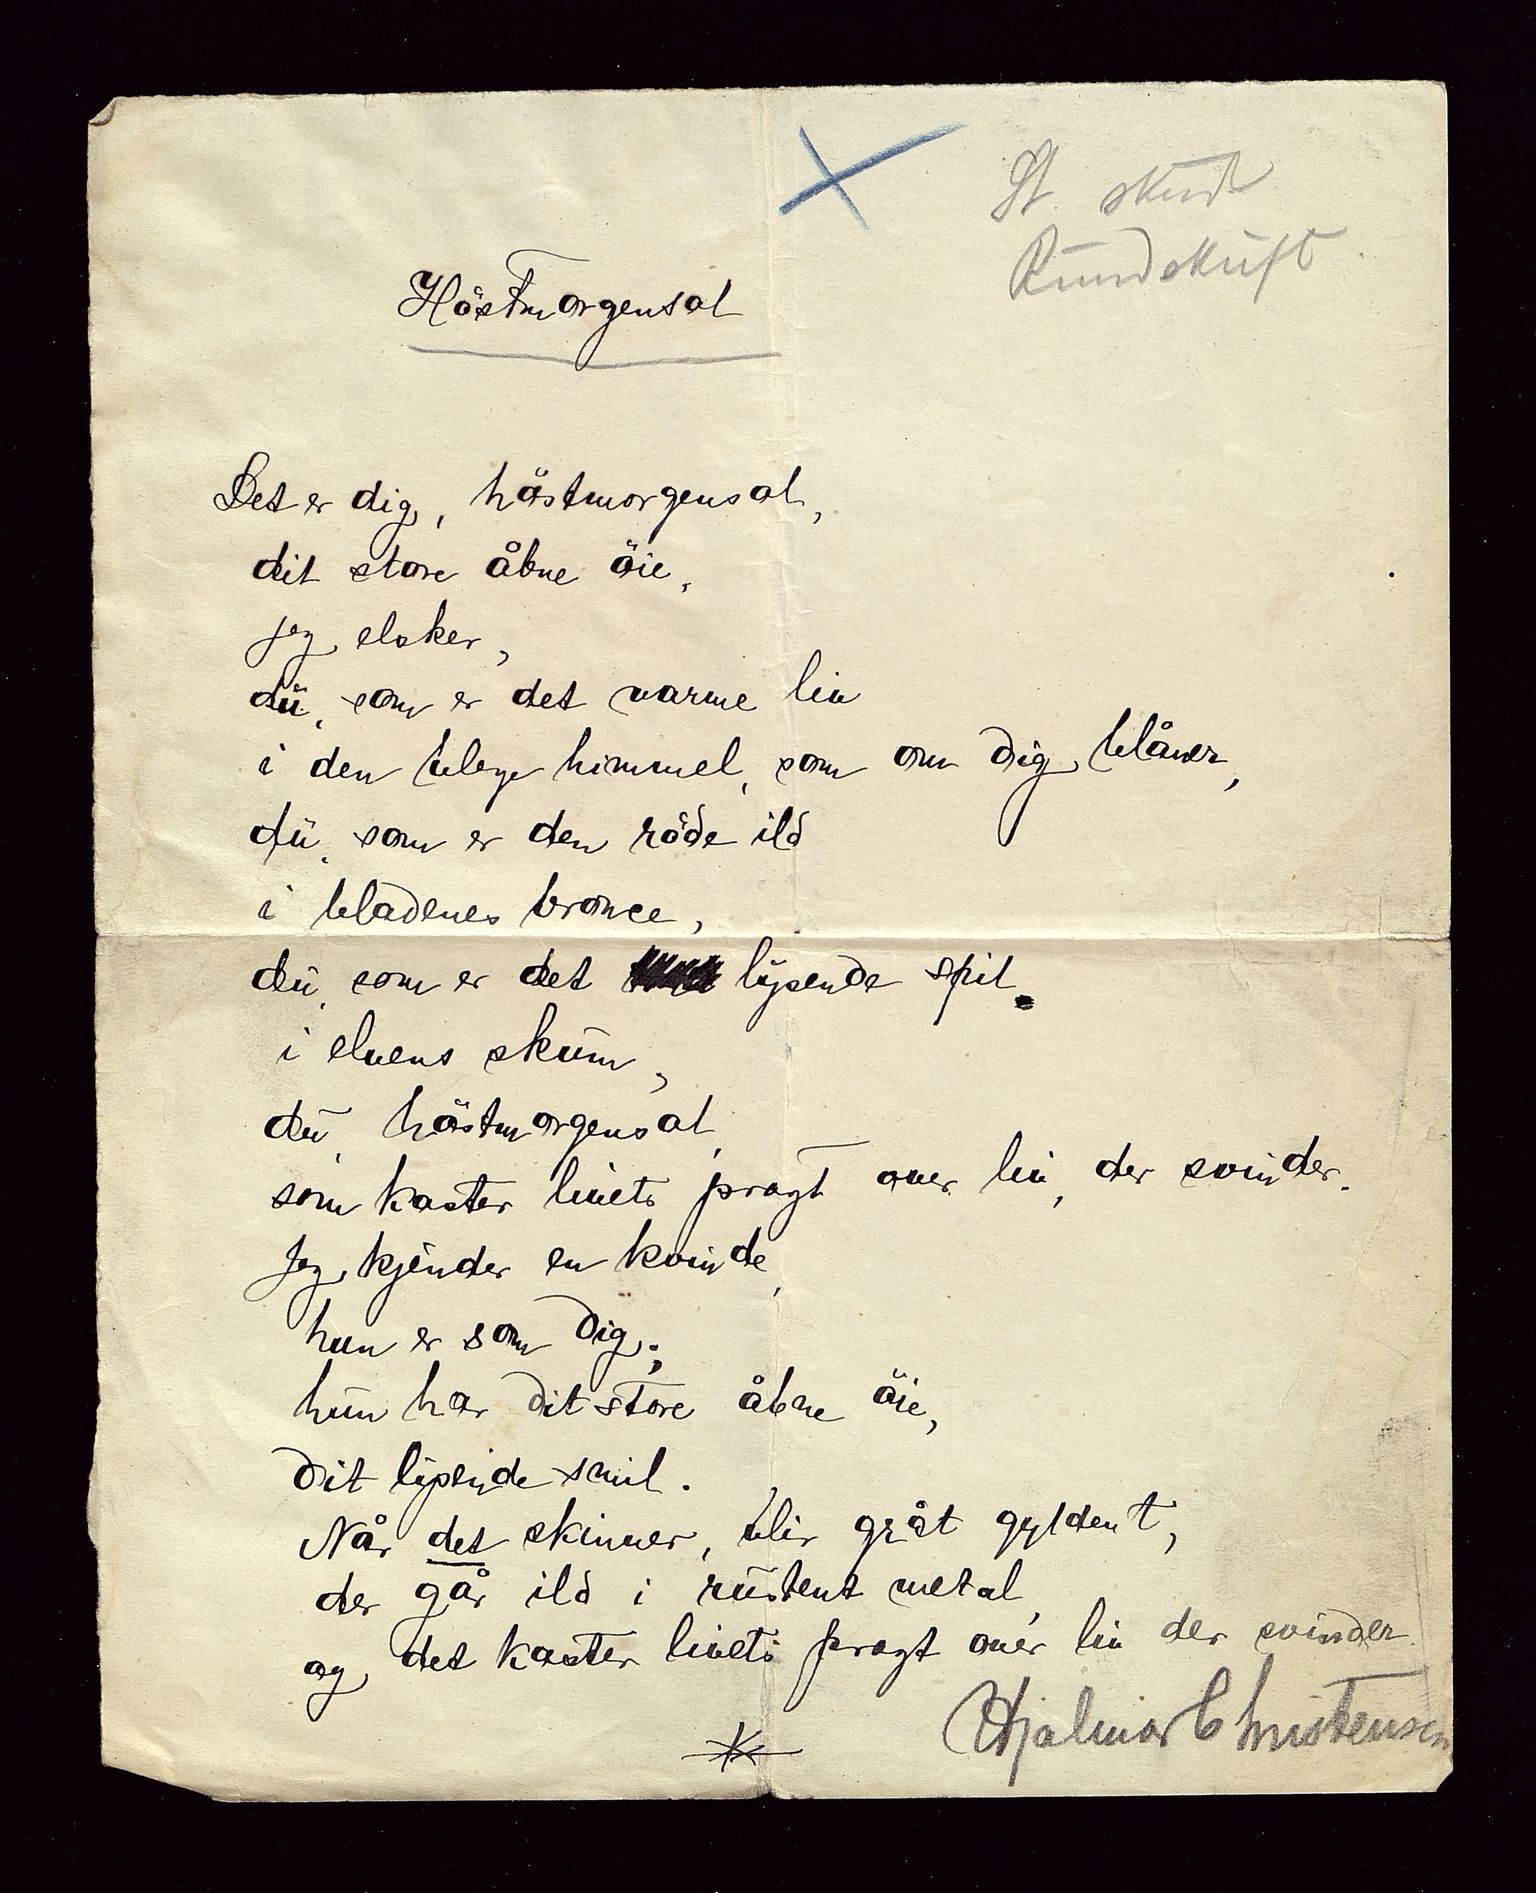 Rundskrift
Höstmorgensol
Det er dig, höstmorgensol,
dit store åbne öie,
jeg elsker,
du, som er det varme liv
i den blege himmel, som om dig blåner,
du, som er den röde ild
i bladenes bronce,
du, som er det lysende spil
i elvens skum,
du, höstmorgensol,
som kaster livets pragt over liv, der svinder.
Jeg kjender en kvinde,
hun er som dig;
hun har dit store åbne öie,
dit lysende smil.
Når det skinner, blir gråt gyldent,
der går ild i rustent metal,
og det kaster livets pragt over liv der svinder.
Hjalmar Christensen